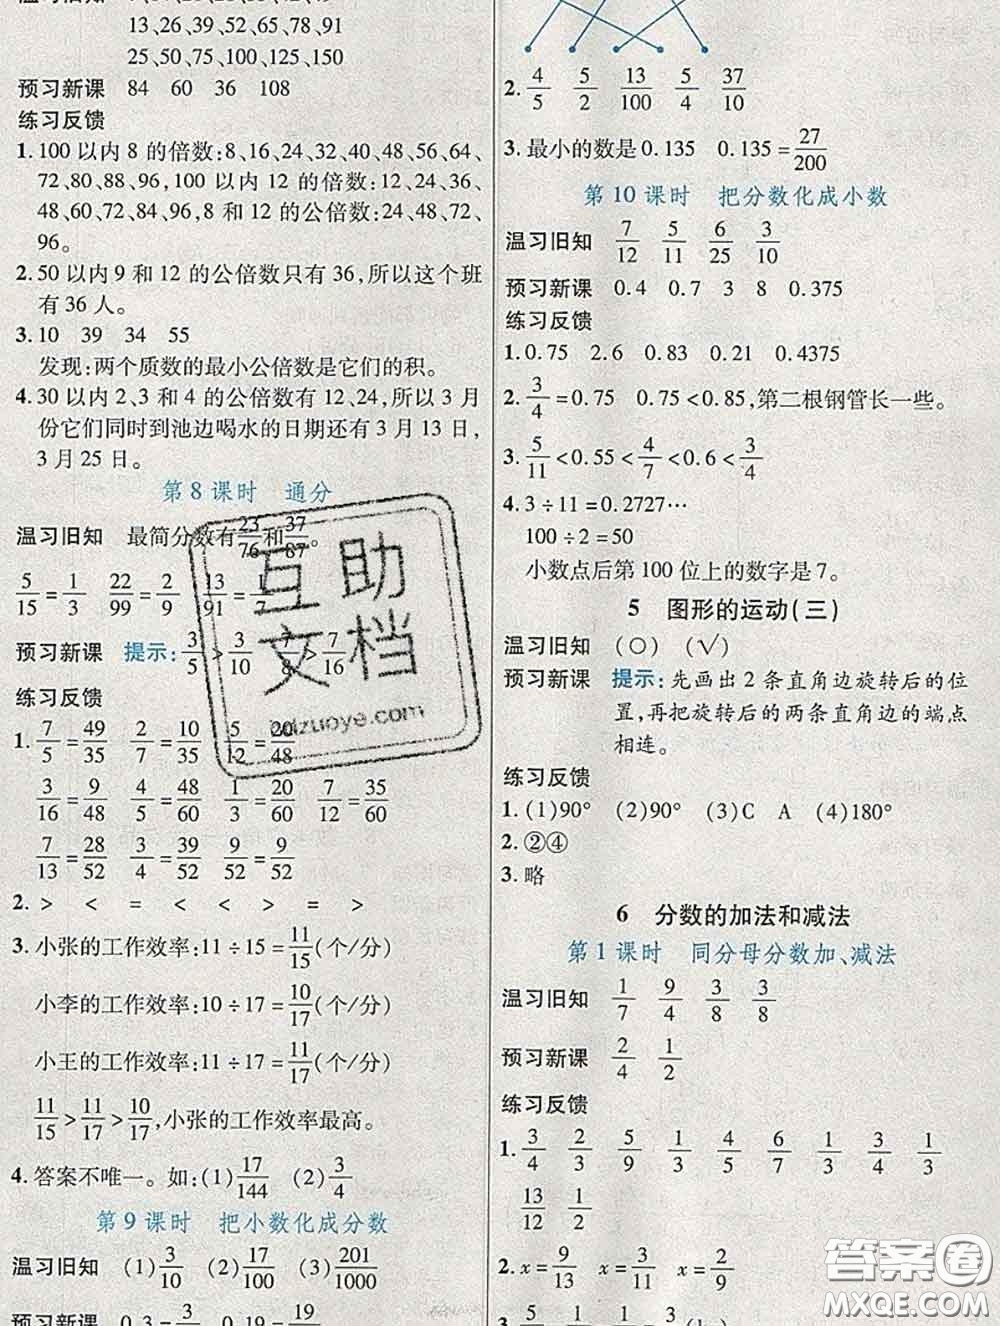 温习旧知
13、26、39、52、65、78、91
25、50、75、100、125、150
预习新课 84 60 36 108
练习反馈
1. 100 以内 8 的倍数:8、16、24、32、40、48、56、64、
72、80、88、96,100 以内 12 的倍数:12、24、36、
48、60、72、84、96,8 和 12 的公倍数:24、48、72、
96。
2. 50 以内 9 和 12 的公倍数只有 36,所以这个班
有 36 人。
3. 10 39 34 55
发现:两个质数的最小公倍数是它们的积。
4. 30 以内 2、3 和 4 的公倍数有 12、24,所以 3 月
份它们同时到池边喝水的日期还有 3 月 13 日,
3 月 25 日。
第 8 课时 通分
温习旧知 最简分数有23/76和37/87。
5/15=1/3 22/99=2/9 13/91=1/7
预习新课 提示:3/5>3/10 7/8>7/16
练习反馈
1. 7/5=49/35 2/7=10/35 5/12=20/48
3/16=9/48 4/5=48/60 1/3=20/60 7/12=35/60
7/13=28/52 3/4=39/52 9/52=9/52
2. > < = < < > = >
3. 小张的工作效率:11÷15=11/15(个/分)
小李的工作效率:10÷17=10/17(个/分)
小王的工作效率:11÷17=11/17(个/分)
11/15>11/17>10/17,小张的工作效率最高。
4. 答案不唯一。如:(1)17/144 (2)3/4
第 9 课时 把小数化成分数
温习旧知 (1)3/10 (2)17/100 (3)201/1000
预习新课 0.3=3 0.9= 0.19=19
2. 4/5 5/2 13/100 5/4 37/10
3. 最小的数是 0.135 0.135=27/200
第 10 课时 把分数化成小数
温习旧知 7/12 5/11 6/25 3/10
预习新课 0.4 0.7 3 8 0.375
练习反馈
1. 0.75 2.6 0.83 0.21 0.4375
2. 3/4=0.75 0.75<0.85,第二根钢管长一些。
3. 5/11<0.55<4/7<0.6<3/4
4. 3÷11=0.2727…
100÷2=50
小数点后第 100 位上的数字是 7。
5 图形的运动(三)
温习旧知 (○) (√)
预习新课 提示:先画出 2 条直角边旋转后的位
置,再把旋转后的两条直角边的端点
相连。
练习反馈
1. (1)90° (2)90° (3)C A (4)180°
2. ②④
3. 略
6 分数的加法和减法
第 1 课时 同分母分数加、减法
温习旧知 1/7 9/4 3/8 3/8
预习新课 2/4 1/2
练习反馈
1. 3/4 2/3 5/9 1/3 4/5 6/7 1/3 3/4 1/3
13/12 1/2
2. x=9/13 x=3/11 x=2/9
互助
文档
zuoye.com
答案圈
MXQE.COM